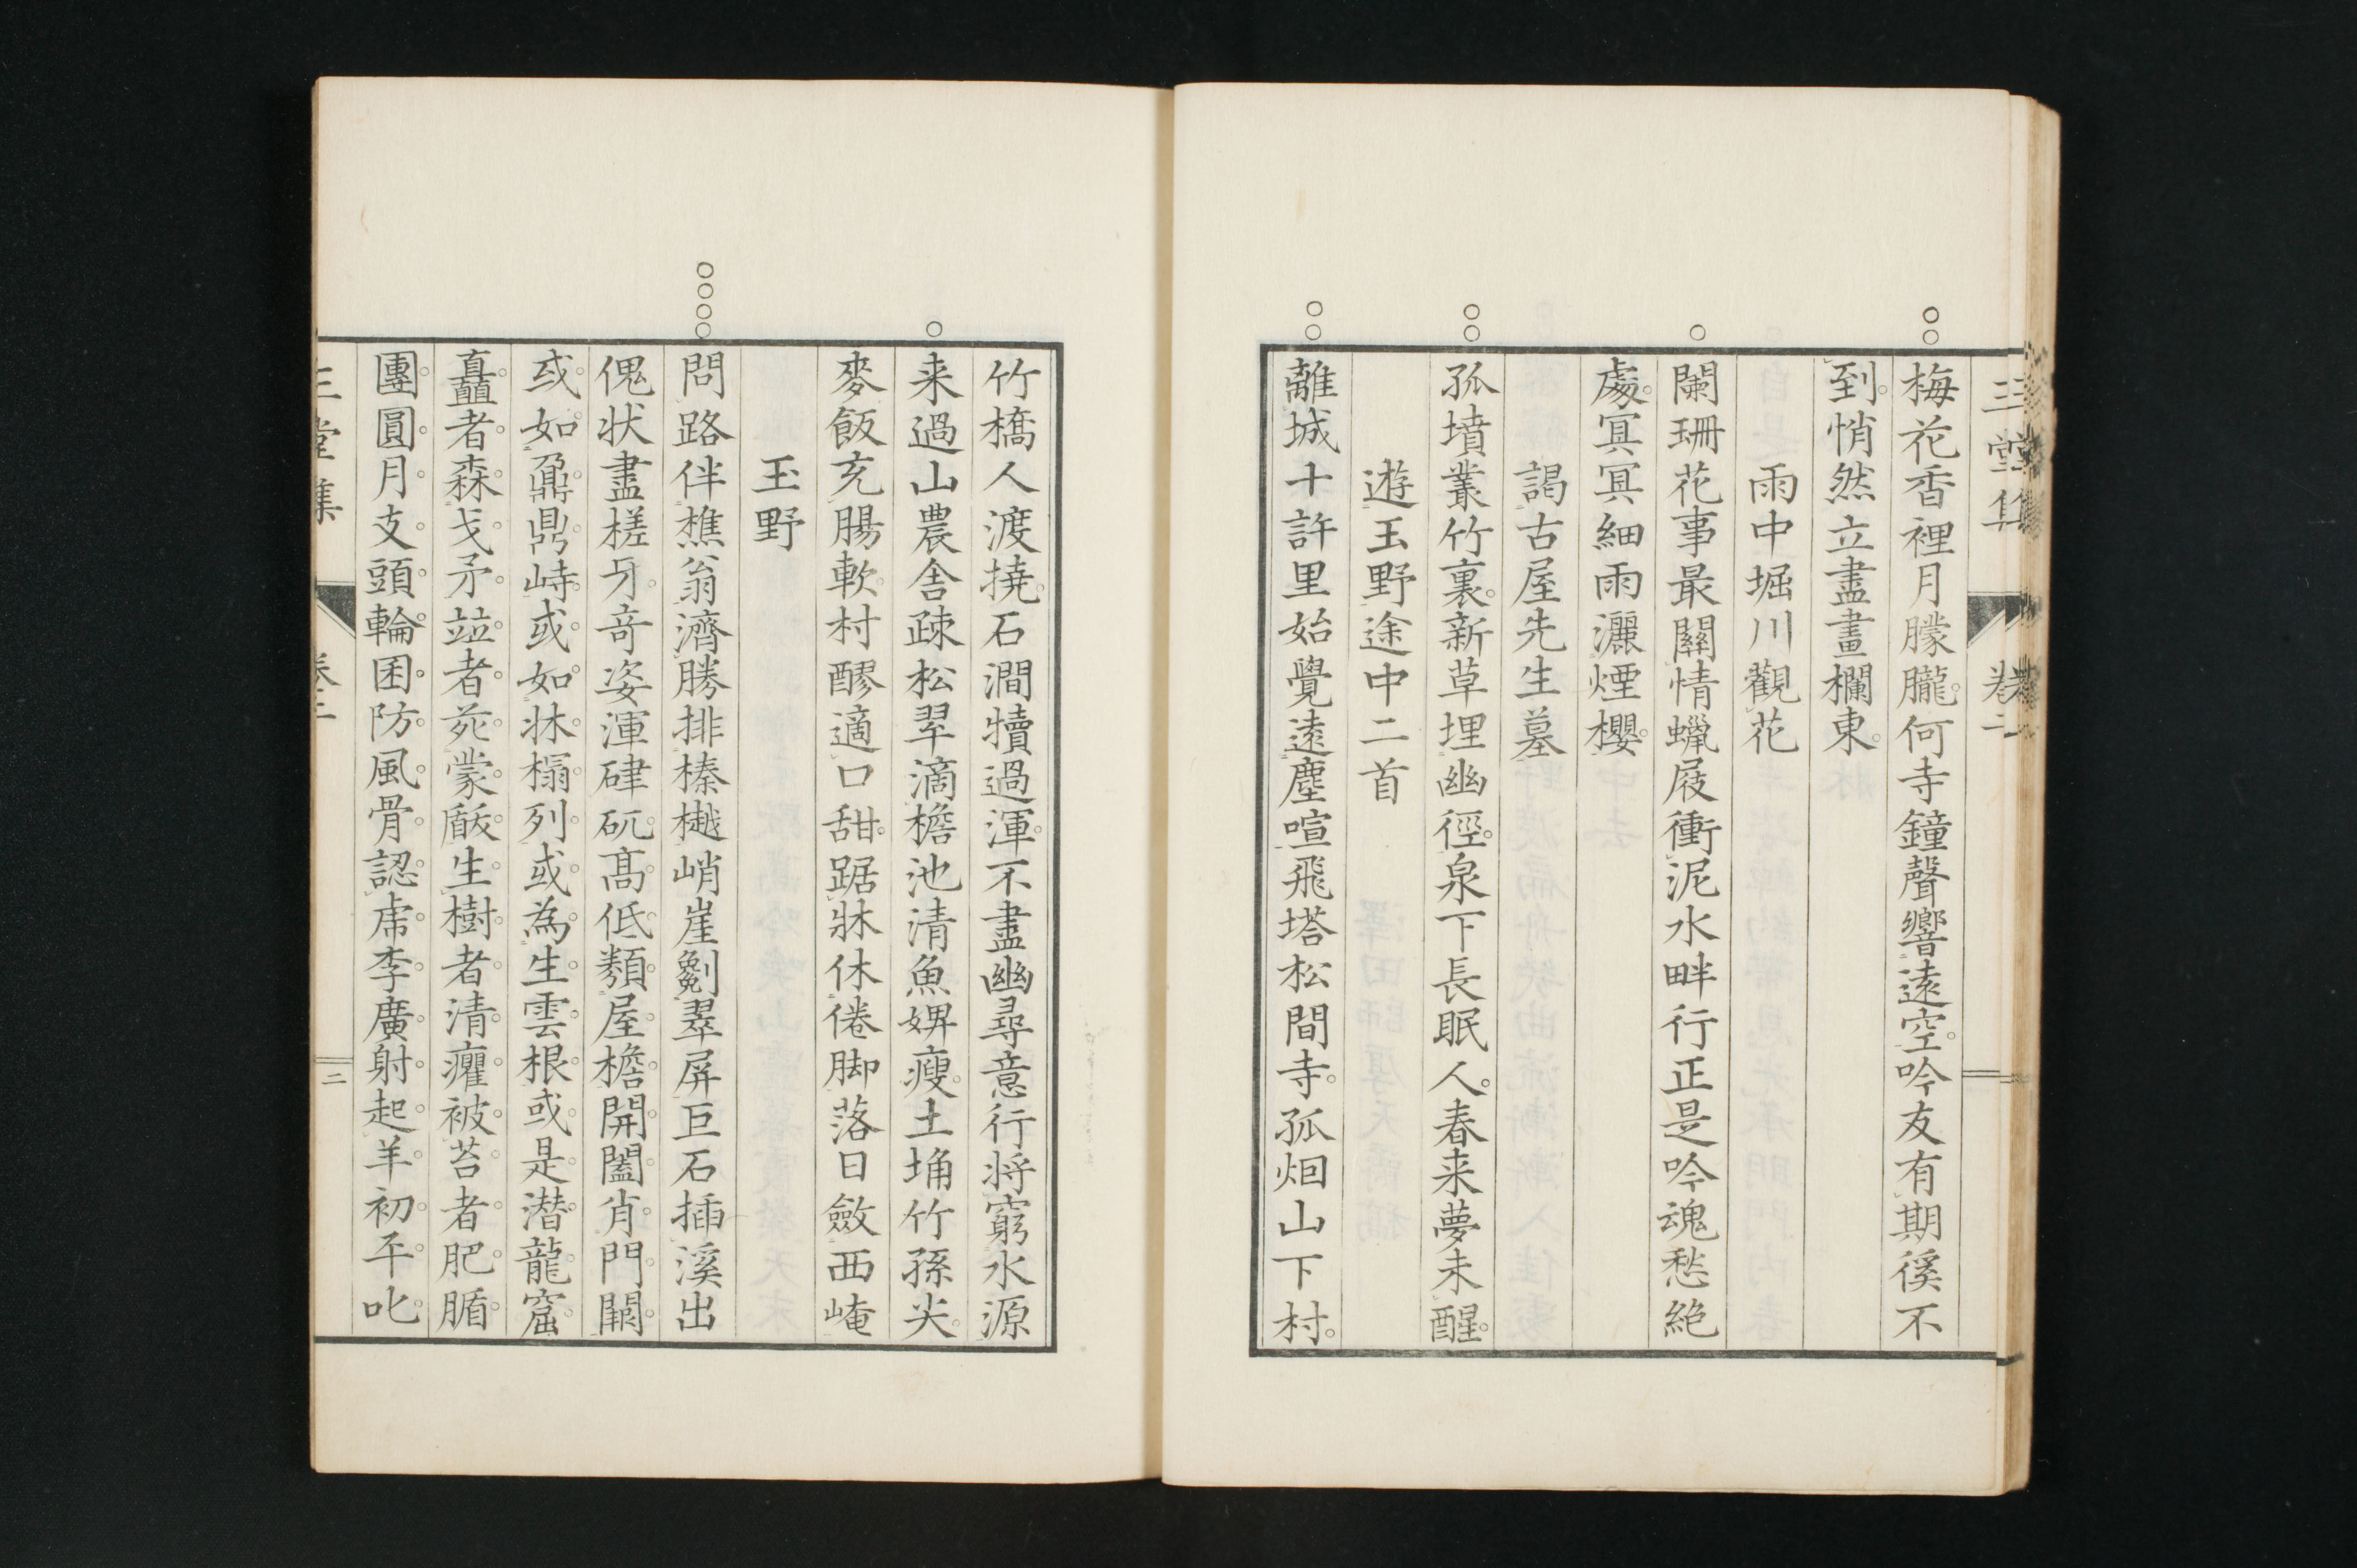 三堂集 卷二
梅花香裡月朦朧何寺鐘聲響遠空吟友有期徯不
到悄然立盡畫欄東
雨中堀川觀花
闌珊花事最關情蠟屐衝泥水畔行正是吟魂愁絕
處冥冥細雨灑煙櫻
謁古屋先生墓
孤墳叢竹裏新草埋幽徑泉下長眠人春来夢未醒
遊玉野途中二首
離城十許里始覺遠塵喧飛塔松間寺孤烟山下村
竹橋人渡撓石澗犢過渾不盡幽尋意行将窮水源
来過山農舍疎松翠滴檐池清魚婢瘦土埇竹孫尖
麥飯充腸軟村醪適口甜踞牀休倦脚落日斂西崦
玉野
問路伴樵翁濟勝排榛樾峭崖劖翠屏巨石插溪出
傀状盡槎牙奇姿渾硉矹髙低類屋檐開闔肖門闑
或如鼐鼎峙或如牀榻列或為生雲根或是潜龍窟
矗者森戈矛竝者苑蒙瞂生樹者清癯被苔者肥腯
團圓月支頭輪囷防風骨認虎李廣射起羊初平叱
三堂集 卷二
二